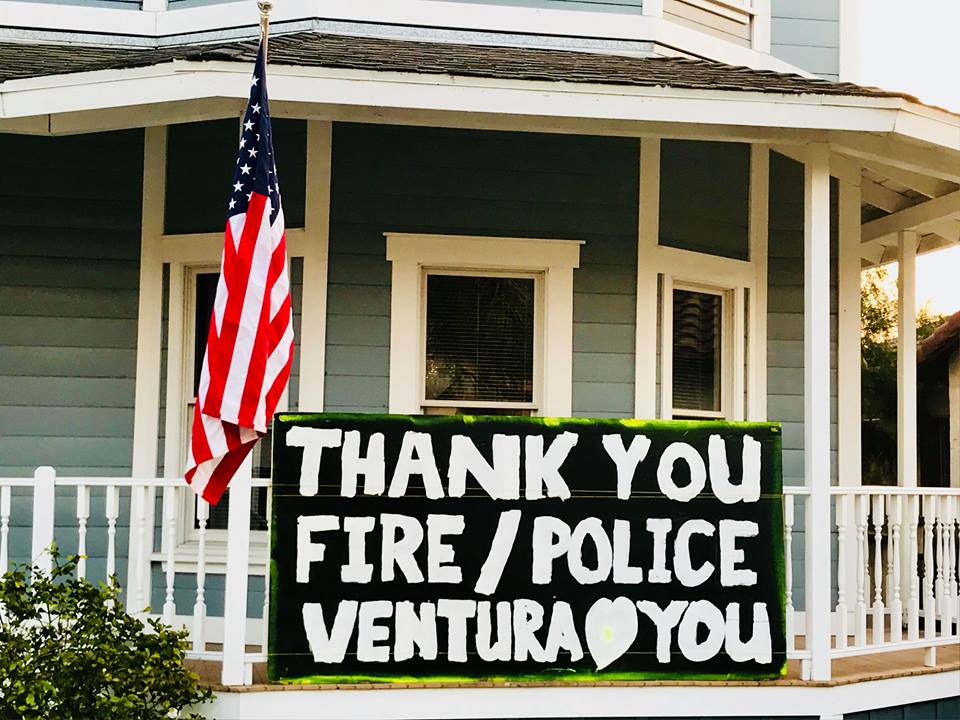 THANK YOU
FIRE/POLICE
VENTURA♥YOU